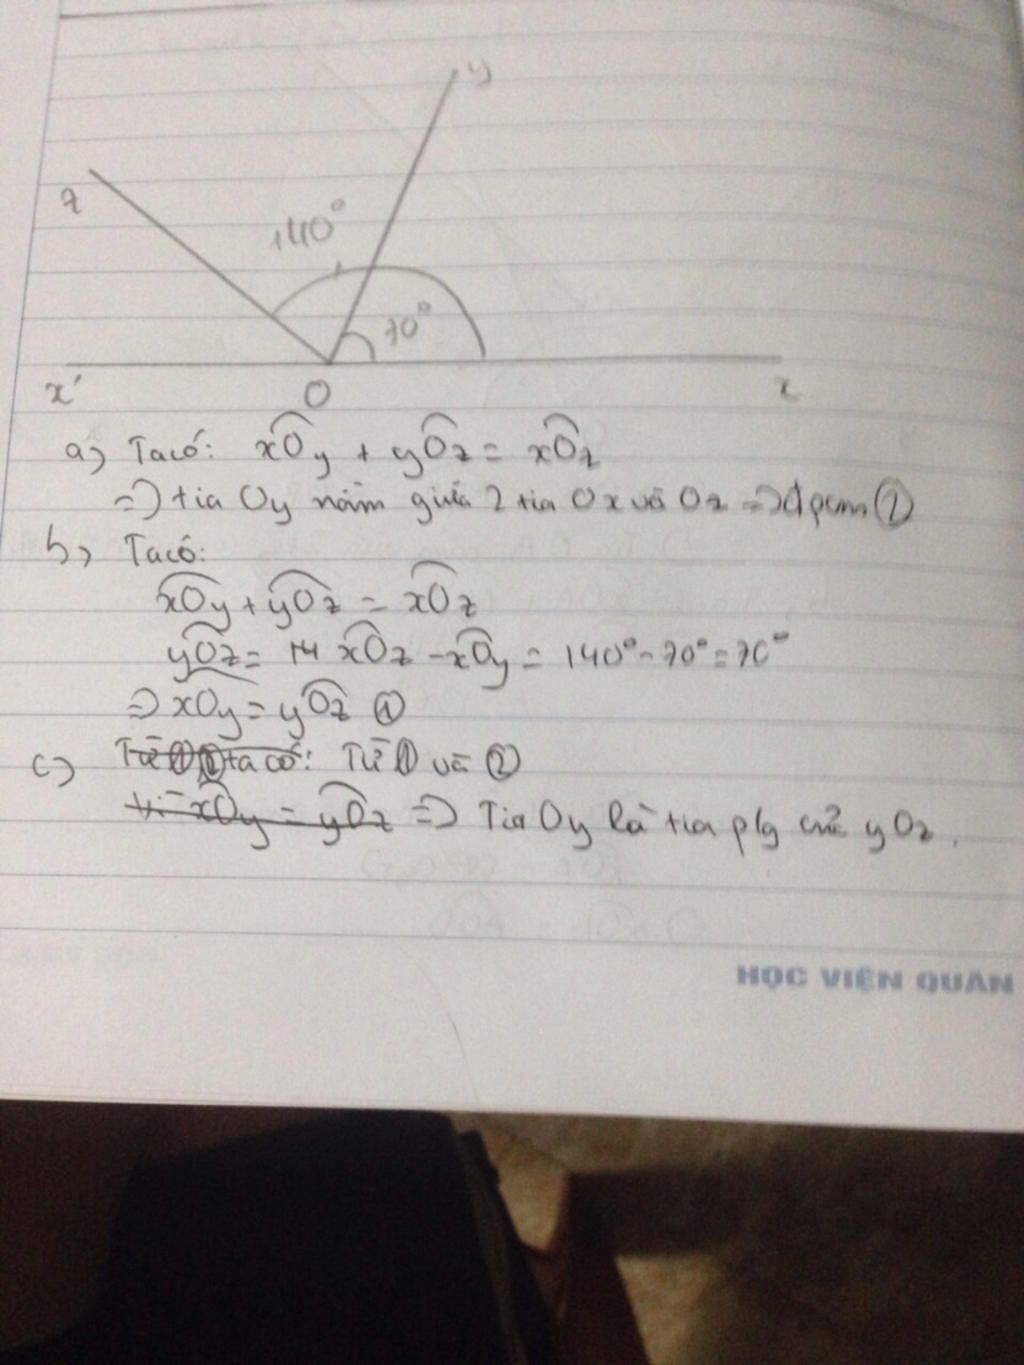 y
z
140°
70°
x'
O
x
a) Ta có: xOy + yOz = xOz
=> tia Oy nằm giữa 2 tia Ox và Oz => đpcm ②
b) Ta có:
xOy + yOz = xOz
yOz = 14 xOz - xOy = 140° - 70° = 70°
=> xOy = yOz ①
c) Từ ① ② ta có: Từ ① và ②
Vì xOy = yOz => Tia Oy là tia p/g của yOz.
HỌC VIỆN QUÂN